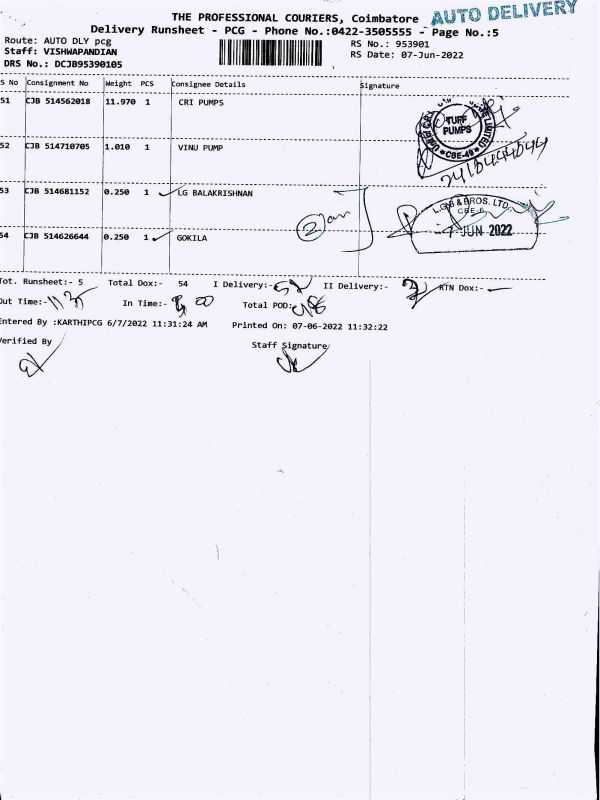 THE PROFESSIONAL COURIERS, Coimbatore
AUTO DELIVERY
Delivery Runsheet - PCG - Phone No.:0422-3505555 - Page No.:5
Route: AUTO DLY pcg
RS No.: 953901
Staff: VISHWAPANDIAN
RS Date: 07-Jun-2022
DRS No.: DCJB95390105
S No Consignment No Weight PCS Consignee Details Signature
51 CJB 514562018 11.970 1 CRI PUMPS
TURF PUMPS
CBE-49
52 CJB 514710705 1.010 1 VINU PUMP
53 CJB 514681152 0.250 1 LG BALAKRISHNAN
L.G.B & BROS. LTD.
CBE-6
7 JUN 2022
54 CJB 514626644 0.250 1 GOKILA
Tot. Runsheet:- 5 Total Dox:- 54 I Delivery:- 52 II Delivery:- RTN Dox:-
Out Time:- In Time:- Total POD:-
Entered By :KARTHIPCG 6/7/2022 11:31:24 AM Printed On: 07-06-2022 11:32:22
Verified By Staff Signature